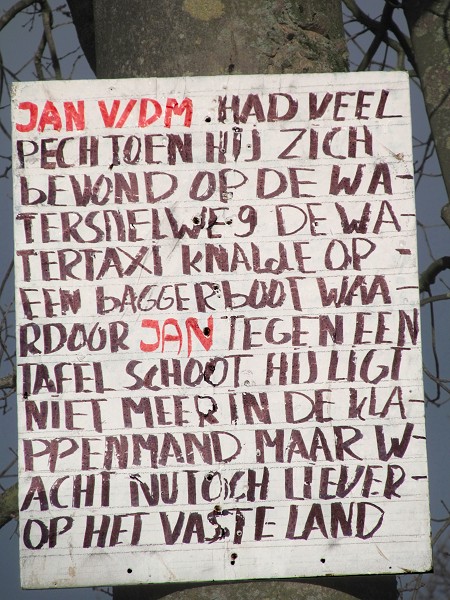 JAN V/DM HAD VEEL
PECH TOEN HIJ ZICH
BEVOND OP DE WA-
TERSNELWEG DE WA-
TERTAXI KNALDE OP -
EEN BAGGERBOOT WAA-
RDOOR JAN TEGEN EEN
TAFEL SCHOOT HIJ LIGT
NIET MEER IN DE KLA-
PPENMAND MAAR W-
ACHT NU TOCH LIEVER-
OP HET VASTE LAND